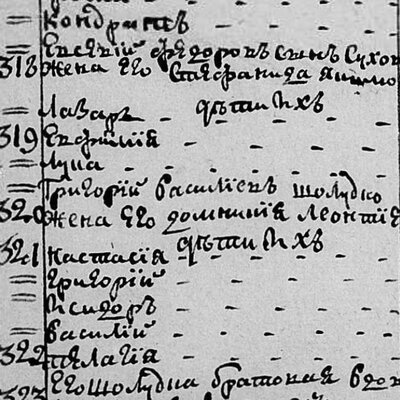 = Кондратъ
= Евсевій Федоровъ сынъ Сухо
318 жена Его Стефанида
дѣти ихъ
= Лазаръ - - -
319 Евфимія - - - -
= Лука - - - -
= Григорій Василіевъ Шолудко
320 жена Его Домникія Леонтіе
дѣти ихъ
321 Настасія
= Григорій - - - -
= Исидоръ - - - -
= Василій - - - -
322 Пелагія - - - -
323 Его Шолудка братовая вдов